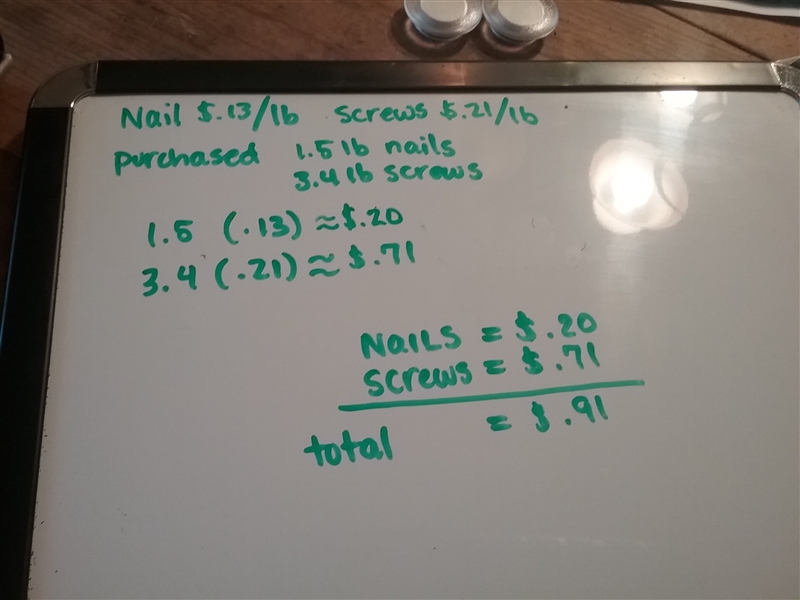 Nail $.13/lb screws $.21/lb
purchased 1.5 lb nails
3.4 lb screws
1.5 (.13) ≈ $.20
3.4 (.21) ≈ $.71
NaiLS = $.20
screws = $.71
total = $.91